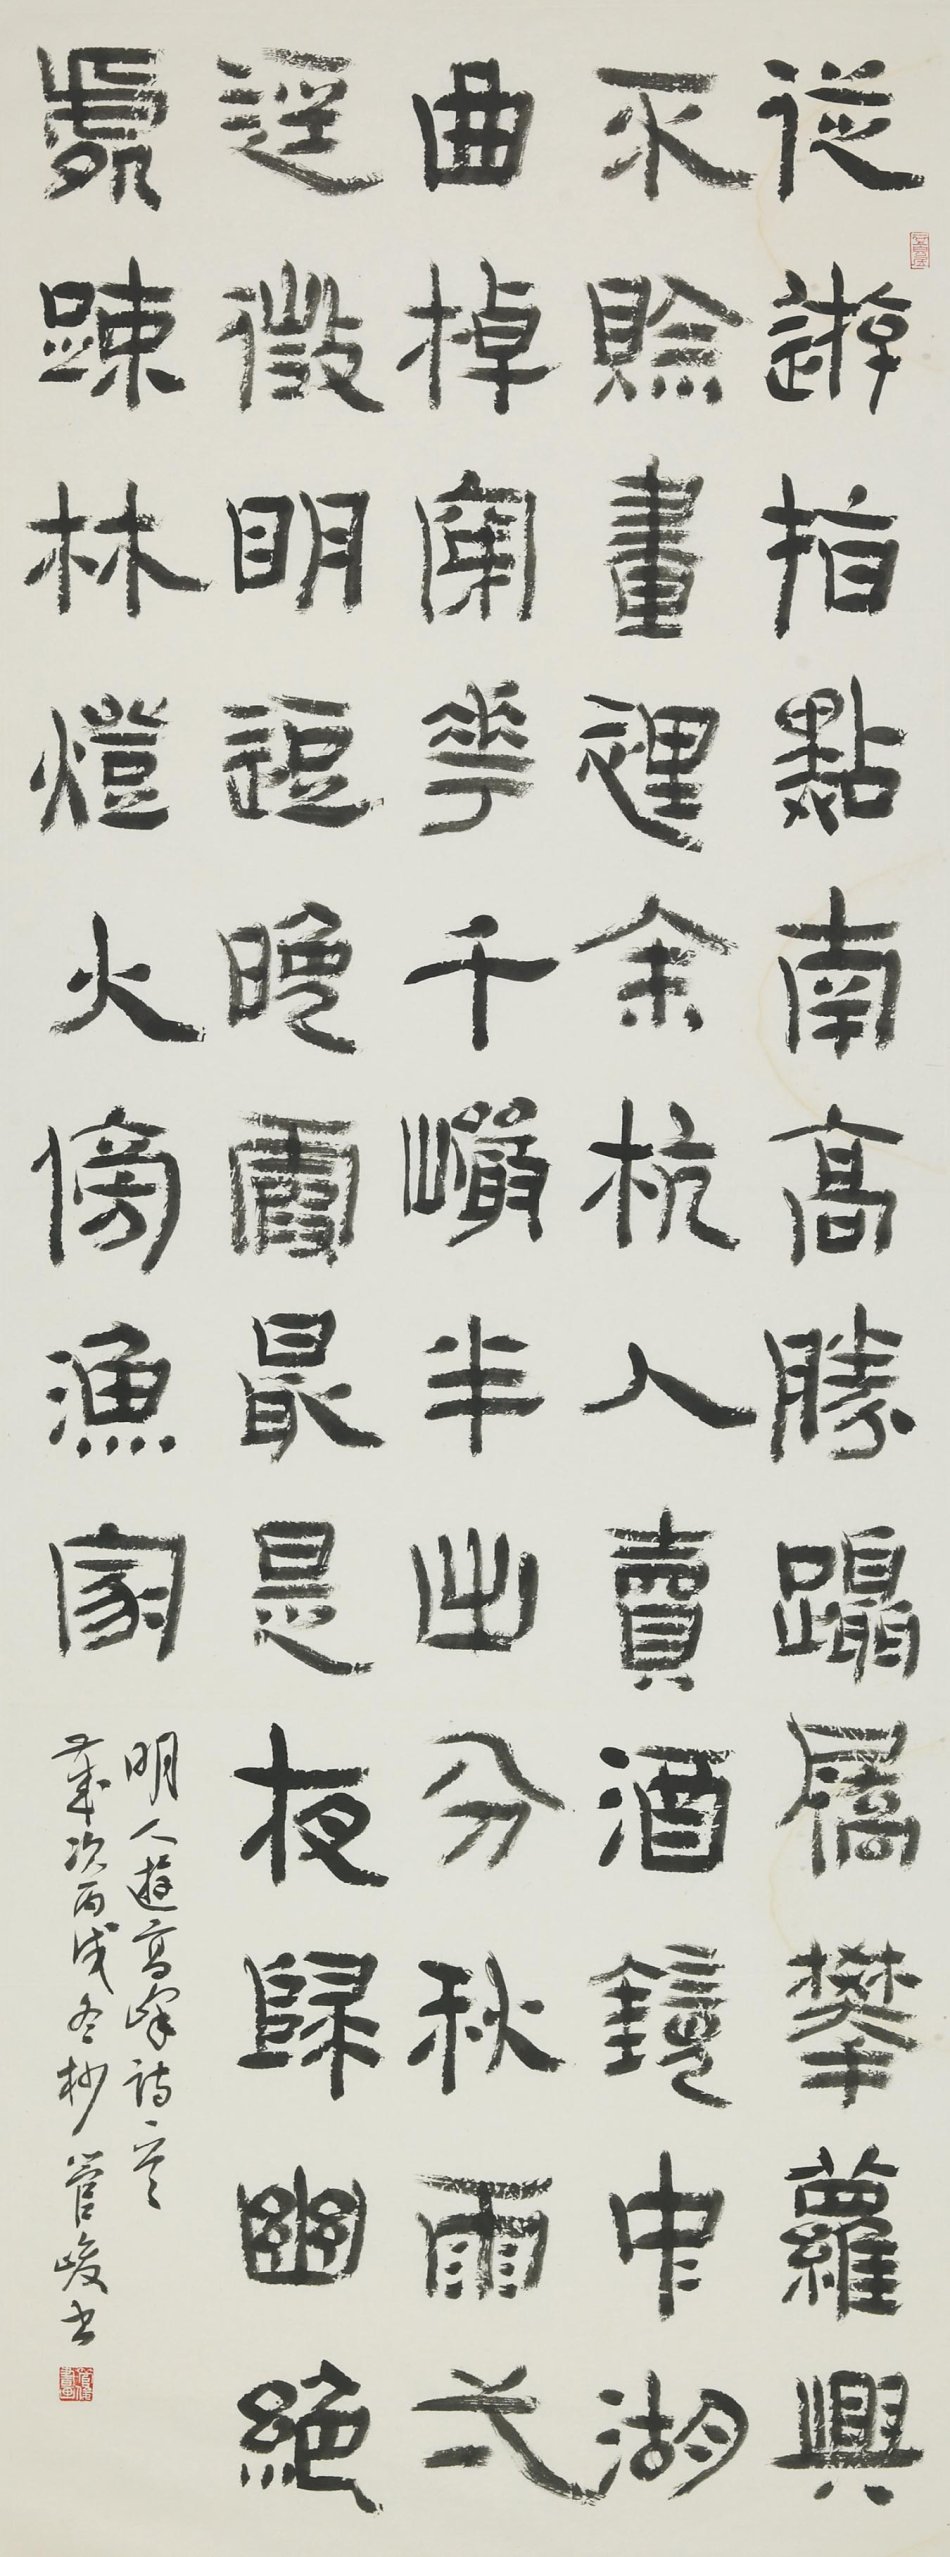 從遊指點南高勝躡屩攀蘿興
不賒畫裡余杭人賣酒鏡中湖
曲棹穿花千巖半出分秋雨弌
逕微明逗晚霞最是夜歸幽絕
處踈林燈火傍漁家
明人遊高峰詩一首
歲次丙戌冬杪管峻書